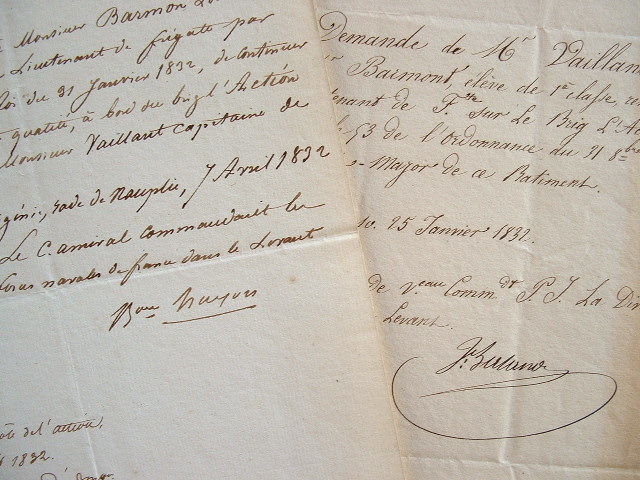 Monsieur Barmon
Lieutenant de frégate par
du 31 Janvier 1832, de continuer
qualité, à bord du brig l'Actéon
Monsieur Vaillant Capitaine de
rade de Nauplie, 7 Avril 1832
Le C. amiral commandant les
navales de france dans le Levant
Bon Hugon
de l'action,
1832.
Demande de Mr Vaillan
Barmont, élève de 1e classe
tenant de F.te sur Le Brig L'A
53 de l'Ordonnance du 31 8bre
Major de ce Batiment.
25 Janvier 1832.
de v.eau Comm.dt P. I. La Di
Levant.